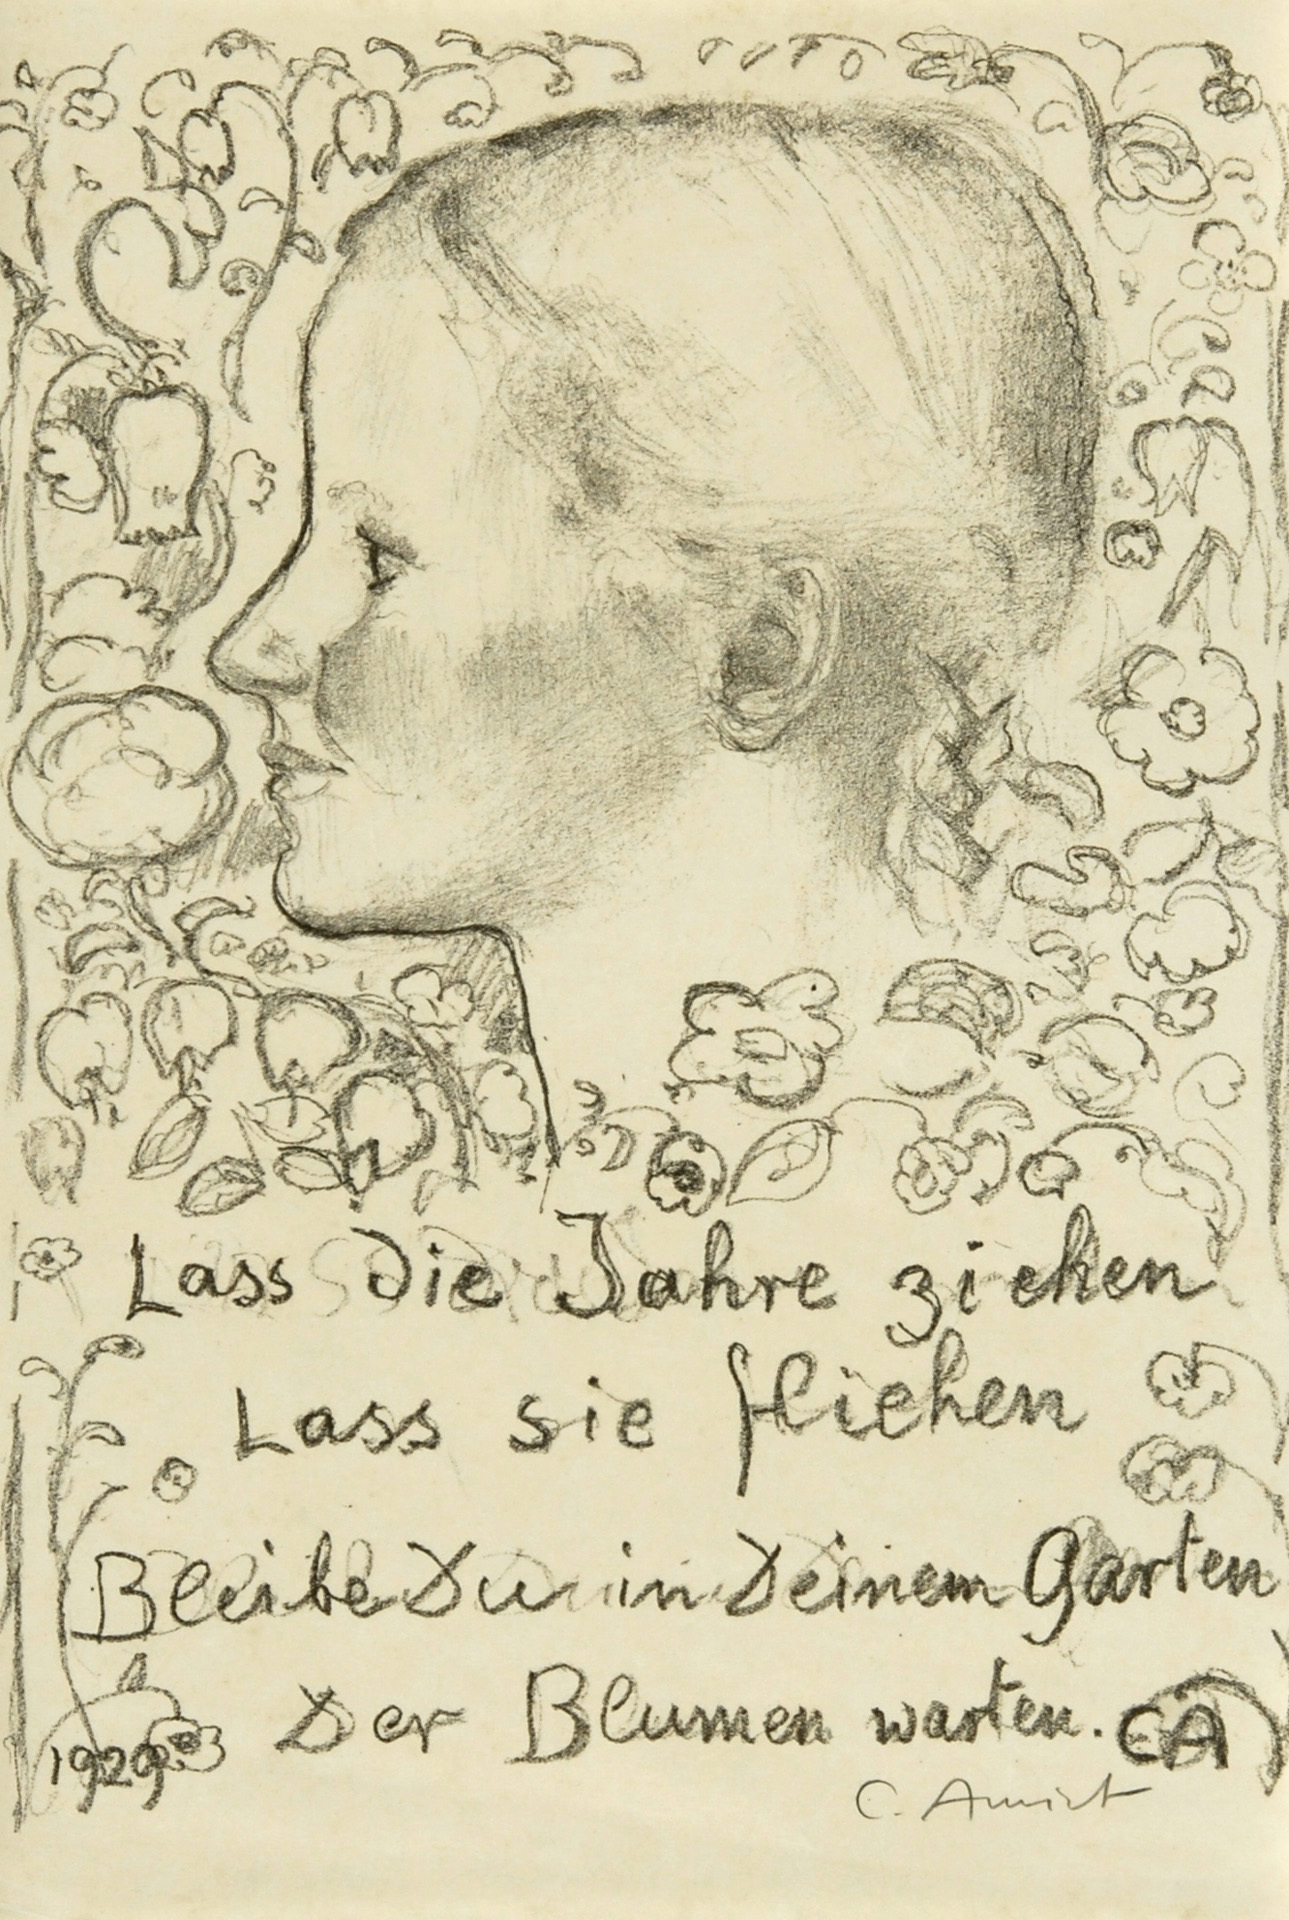 Lass die Jahre ziehen
Lass sie fliehen
Bleibe Du in Deinem Garten
Der Blumen warten. CA
1929
C. Amiet